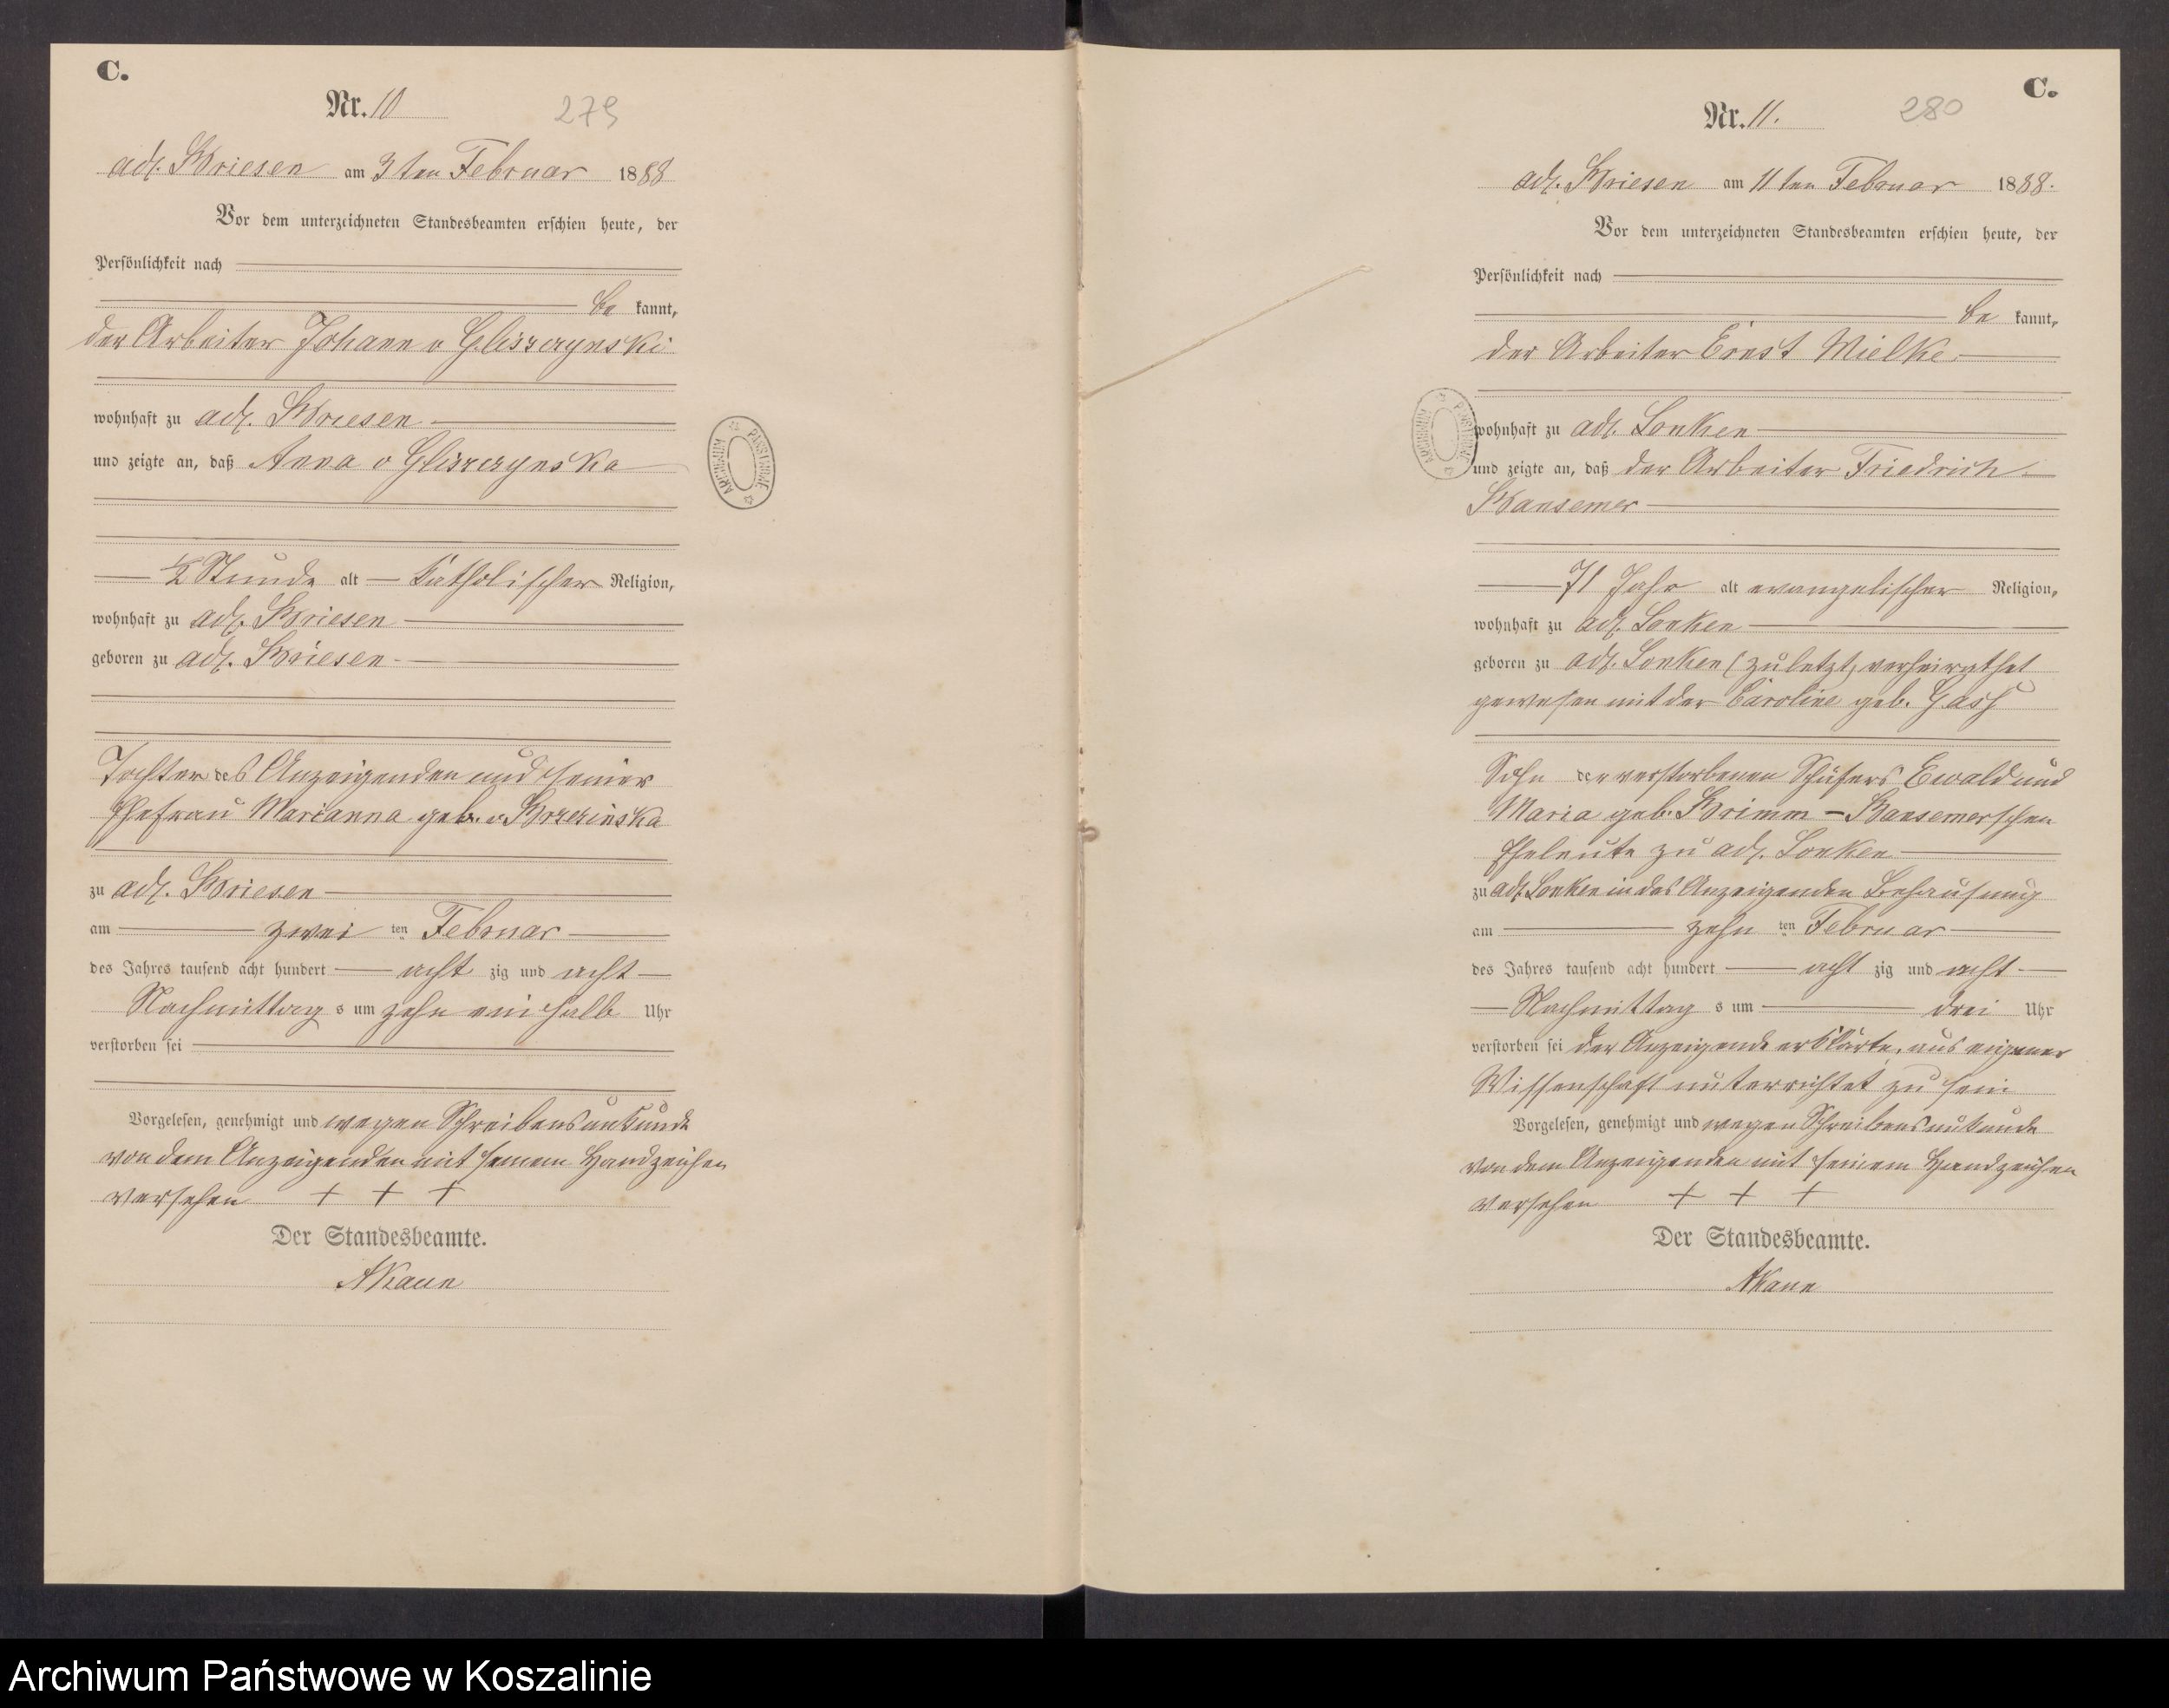 C.
Nr. 10
279
adl. Briesen am 3ten Februar 1888
Vor dem unterzeichneten Standesbeamten erschien heute, der
Persönlichkeit nach
be kannt,
der Arbeiter Johann v Gliszczynski
wohnhaft zu adl. Briesen
und zeigte an, daß Anna v Gliszczynska
1/2 Stunde alt katholischer Religion,
wohnhaft zu adl. Briesen
geboren zu adl. Briesen
Tochter des Anzeigenden und seiner
Ehefrau Marianna geb. v Brzezinska
zu adl. Briesen
am zwei ten Februar
des Jahres tausend acht hundert acht zig und acht
Nachmittag s um zehn ein halb Uhr
verstorben sei
Vorgelesen, genehmigt und wegen Schreibensunkunde
von dem Anzeigenden mit seinem Handzeichen
versehen + + +
Der Standesbeamte.
ARCHIWUM PAŃSTWOWE
C.
Nr. 11.
280
adl. Briesen am 11ten Februar 1888.
Vor dem unterzeichneten Standesbeamten erschien heute, der
Persönlichkeit nach
be kannt,
der Arbeiter Ernst Mielke
wohnhaft zu adl. Lonken
und zeigte an, daß der Arbeiter Friedrich
Bansemer
71 Jahr alt evangelischer Religion,
wohnhaft zu adl. Lonken
geboren zu adl. Lonken (zuletzt verheirathet
gewesen mit der Caroline geb. Gast
Sohn der verstorbenen Schäfers Ewald und
Maria geb. Brimm - Bansemerschen
Eheleute zu adl. Lonken
zu adl. Lonken in des Anzeigenden Behausung
am zehn ten Februar
des Jahres tausend acht hundert acht zig und acht
Nachmittag s um drei Uhr
verstorben sei der Anzeigende erklärte, aus eigener
Wissenschaft unterrichtet zu sein
Vorgelesen, genehmigt und wegen Schreibensunkunde
von dem Anzeigenden mit seinem Handzeichen
versehen + + +
Der Standesbeamte.
ARCHIWUM PAŃSTWOWE
Archiwum Państwowe w Koszalinie